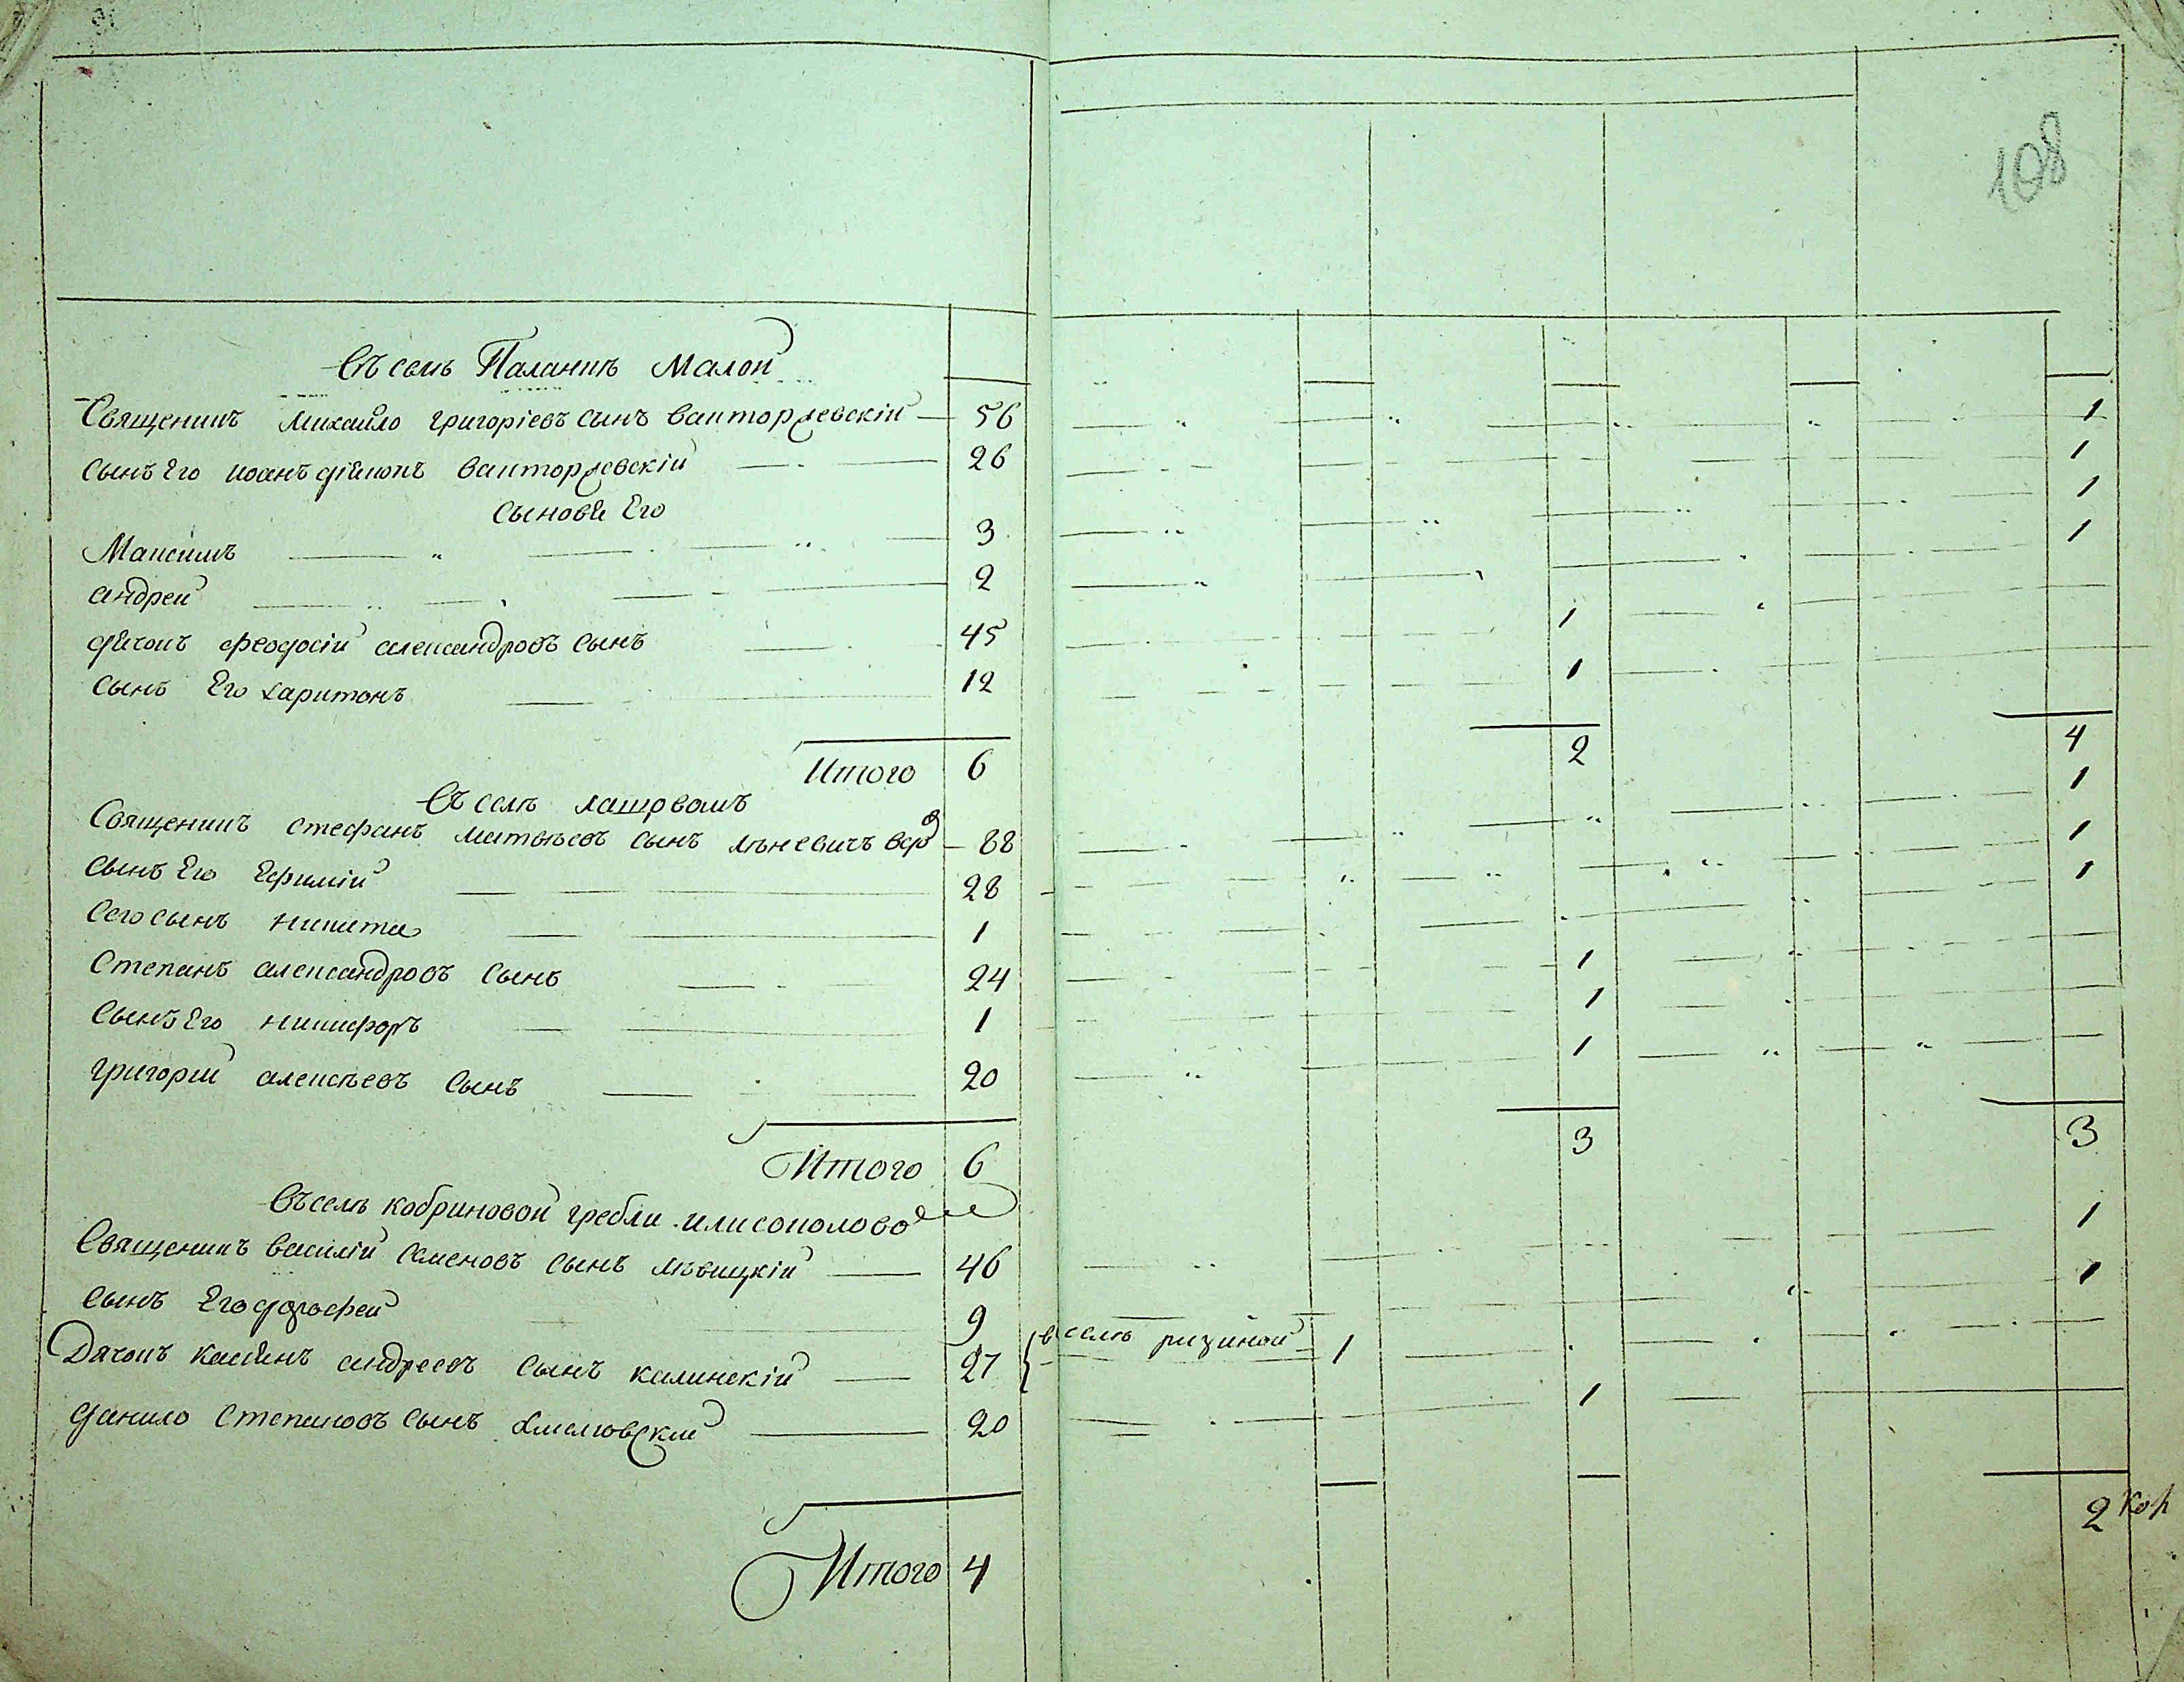 108
Въ селѣ Паланкѣ Малой
Священикъ Михайло григоріевъ сынъ 56 1
сынъ Его иоанъ діяконъ 26 1
сыновѣ Его 1
Максимъ 3 1
андрей 2
дячокъ феодосіи александровъ сынъ 45 1
сынъ Его харитонъ 12 1
Итого 6 2 4
Въ селѣ 1
Священикъ стефанъ матвѣевъ сынъ 88 1
сынъ Его Ефимій 28 1
Сего сынъ никита 1
Степанъ александровъ сынъ 24 1
сынъ Его никифоръ 1 1
григорий алексѣевъ сынъ 20 1
Итого 6 3 3
Въ селѣ кобриновой гребли
Священикъ василій семеновъ сынъ лѣвицкій 46 1
сынъ Его дорофей 9 1
Дячокъ андреевъ сынъ калинскій 27 в селѣ ризиной 1
данило степановъ сынъ 20 1
Итого 4 2